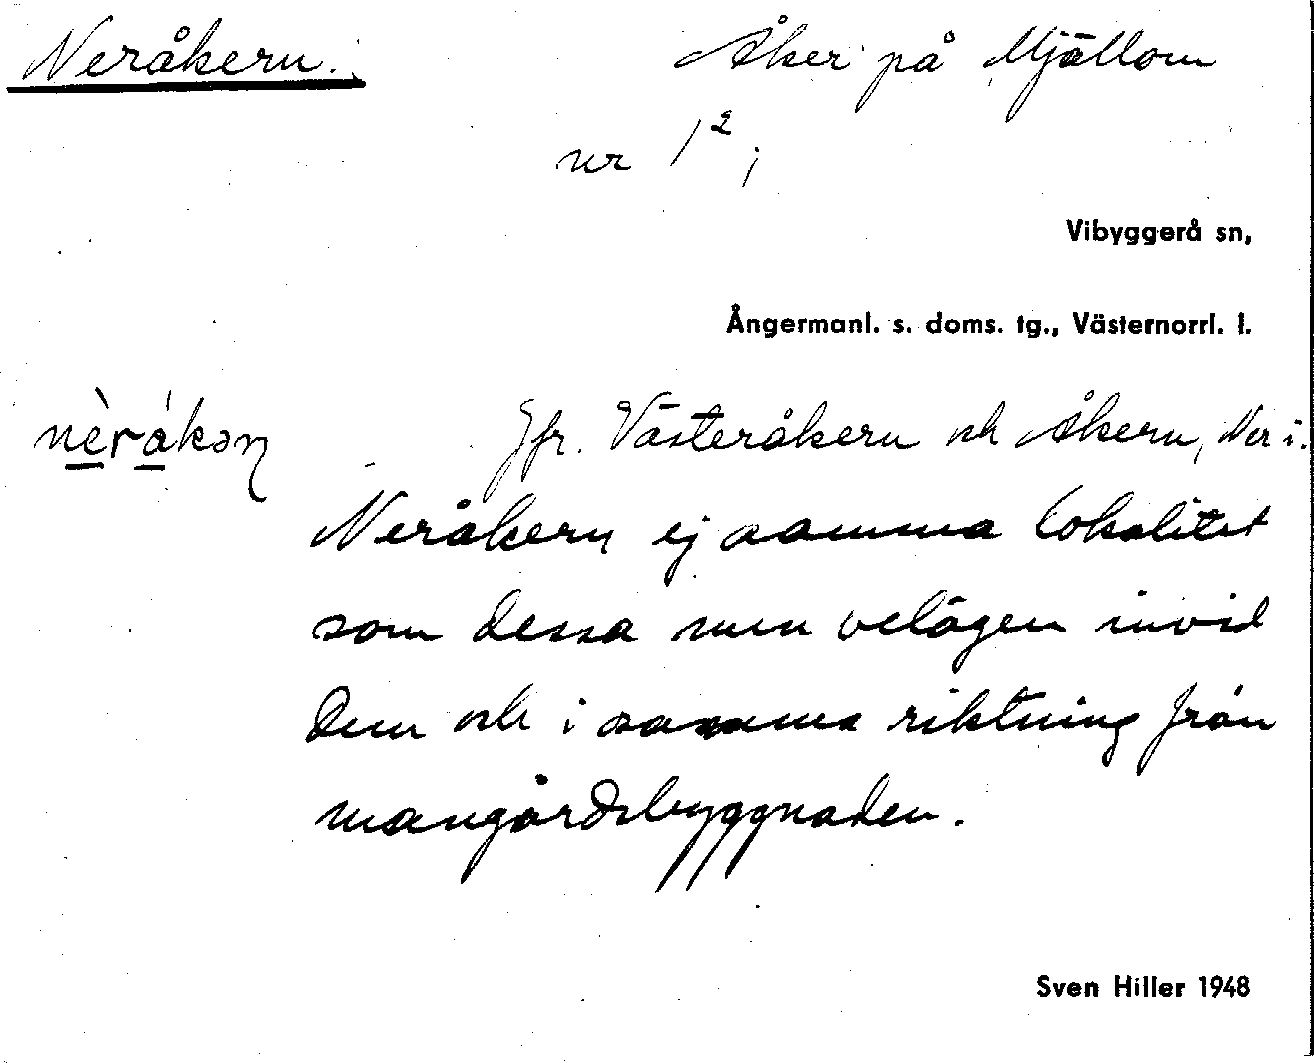 Neråkern.
Åker på Mjällom
nr 1²;
Vibyggerå sn,
Ångermanl. s. doms. tg., Västernorrl. l.
nè̱rá̱kəɳ
Jfr. Västeråkern och Åkern, Ner i.
Neråkern ej samma lokalitet
som dessa men belägen invid
dem och i samma riktning från
mangårdsbyggnaden.
Sven Hiller 1948